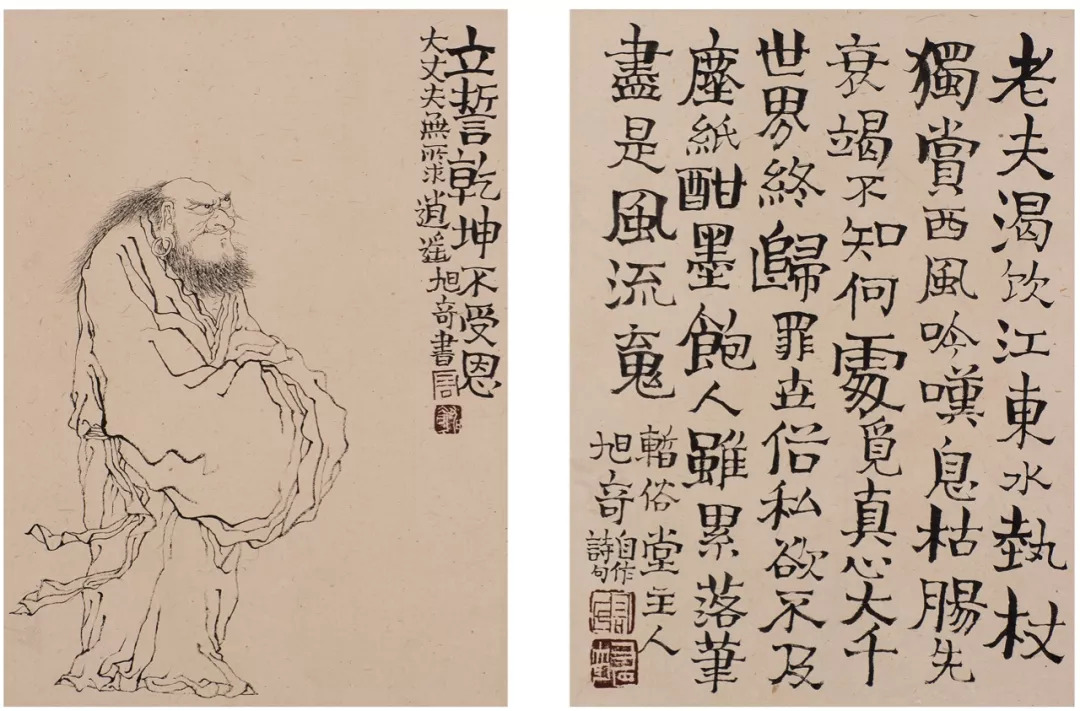 立誓乾坤不受恩
大丈夫無所求逍遥旭奇書
老夫渴饮江東水執杖
獨賞西風吟嘆息枯腸先
衰竭不知何處覓真心大千
世界終歸罪世俗私欲不及
塵紙酣墨飽人雖累落筆
盡是風流䰟
暫俗堂主人
旭奇自作
詩句